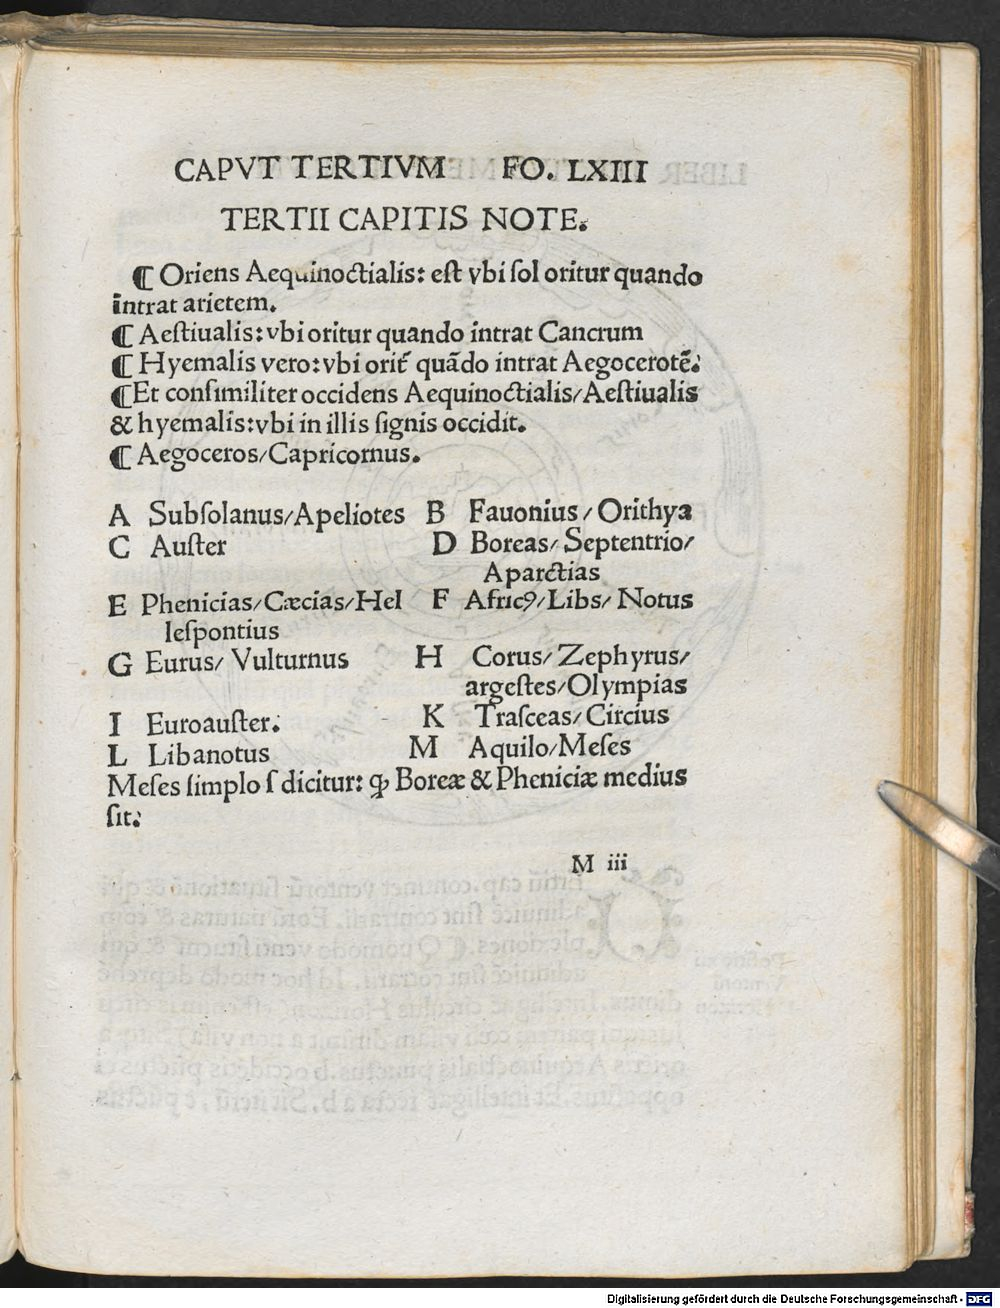 CAPVT TERTIVM FO. LXIII
TERTII CAPITIS NOTE.
¶ Oriens Aequinoctialis: est vbi sol oritur quando
intrat arietem.
¶ Aestiualis: vbi oritur quando intrat Cancrum
¶ Hyemalis vero: vbi orit᷑ quãdo intrat Aegocerotẽ.
¶ Et consimiliter occidens Aequinoctialis/Aestiualis
& hyemalis: vbi in illis signis occidit.
¶ Aegoceros/Capricornus.
A Subsolanus/Apeliotes B Fauonius/Orithya
C Auster D Boreas/Septentrio/
Aparctias
E Phenicias/Cæcias/Hel F Africꝰ/Libs/Notus
lespontius
G Eurus/Vulturnus H Corus/Zephyrus/
argestes/Olympias
I Euroauster. K Trasceas/Circius
L Libanotus M Aquilo/Meses
Meses simplo s dicitur: ꝙ Boreæ & Pheniciæ medius
sit.
M iii
Digitalisierung gefördert durch die Deutsche Forschungsgemeinschaft - DFG